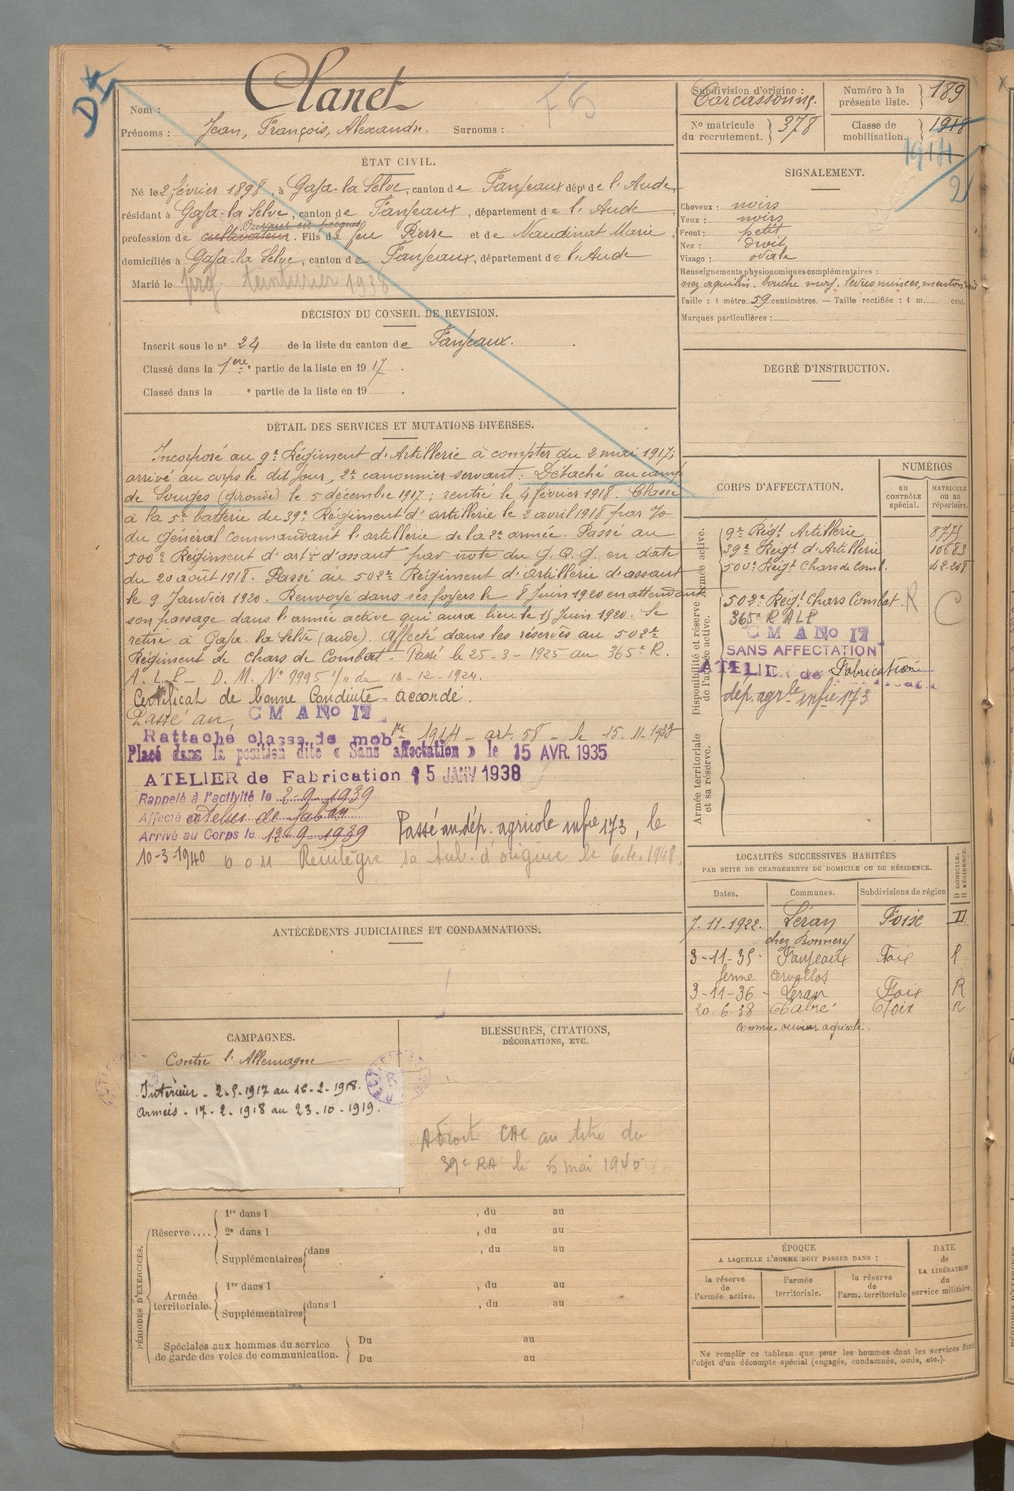 DI
Nom : Clanet
Prénoms : Jean, François, Alexandre. Surnoms :
F5
Subdivision d'origine : Carcassonne.
Numéro à la présente liste. } 189
No matricule du recrutement. } 378
Classe de mobilisation. } 1918
1914
ÉTAT CIVIL.
Né le 2 février 1898, à Gaja-la-Selve, canton de Fanjeaux, dépt de l'Aude,
résidant à Gaja-la-Selve, canton de Fanjeaux, département de l'Aude,
profession de cultivateur. Fils de feu Pierre et de Naudinat Marie,
domiciliés à Gaja-la-Selve, canton de Fanjeaux, département de l'Aude
Marié le
prof teinturier 1938
SIGNALEMENT.
Cheveux : noirs
Yeux : noirs
Front : petit
Nez : droit
Visage : ovale
Renseignements physionomiques complémentaires :
nez aquilin. bouche moy. lèvres minces, menton
Taille : 1 mètre 59 centimètres. — Taille rectifiée : 1 m. cent.
Marques particulières :
DÉCISION DU CONSEIL DE REVISION.
Inscrit sous le no 24 de la liste du canton de Fanjeaux.
Classé dans la 1ere partie de la liste en 1917.
Classé dans la e partie de la liste en 19 .
DEGRÉ D'INSTRUCTION.
DÉTAIL DES SERVICES ET MUTATIONS DIVERSES.
Incorporé au 9e Régiment d'Artillerie à compter du 2 mai 1917;
arrivé au corps le dit jour, 2e canonnier servant. Détaché au camp
de Souges (Gironde) le 5 décembre 1917; rentré le 4 février 1918. Classé
à la 5e batterie du 39e Régiment d'artillerie le 2 avril 1918 par
du Général Commandant l'artillerie de la 2e armée. Passé au
500e Régiment d'artie d'assaut par note du G.Q.G. en date
du 20 août 1918. Passé au 502e Régiment d'artillerie d'assaut
le 9 Janvier 1920. Renvoyé dans ses foyers le 8 Juin 1920 en attendant
son passage dans l'armée active qui aura lieu le 15 Juin 1920. Se
retire à Gaja-la-Selve (Aude). Affecté dans les réserves au 502e
Régiment de chars de Combat. Passé le 25-3-1925 au 365e R.
A.L.P. D.M. No 9995 1/11 du 10-12-1924.
Certificat de bonne Conduite accordé.
Passé au C M A No 17
Rattaché classe de mob 1914 - art. 58 - le 15-11-1933
Placé dans la position dite « Sans affectation » le 15 AVR. 1935
ATELIER de Fabrication 15 JANV 1938
Rappelé à l'activité le 2-9-1939
Affecté
Arrivé au Corps le 12-9-1939
Passé au dép. agricole infie 173, le
10-3-1940
Réintègre sa sub. d'origine le
CORPS D'AFFECTATION.
NUMÉROS
AU CONTRÔLE SPÉCIAL.
MATRICULE OU AU RÉPERTOIRE.
Armée active.
9e Régt Artillerie
39e Régt d'Artillerie 10683
500e Régt Chars de Comb. 42208
Disponibilité et réserve de l'armée active.
502e Régt Chars Combat R C
365e R A L P
C M A No 17
SANS AFFECTATION
ATELIER de Fabrication
dép. agrle infie 173
Armée territoriale et sa réserve.
LOCALITÉS SUCCESSIVES HABITÉES
PAR SUITE DE CHANGEMENTS DE DOMICILE OU DE RÉSIDENCE.
Dates. Communes. Subdivisions de région
D DOMICILE. R RÉSIDENCE.
7-11-1922. Léran Foix D
chez Bonnery
3-11-35 Fanjeaux Foix R
ferme
3-11-36 Léran Foix R
20-6-38 Foix R
comme ouvrier agricole.
ANTÉCÉDENTS JUDICIAIRES ET CONDAMNATIONS.
CAMPAGNES.
Contre l'Allemagne
Intérieur - 2-5-1917 au 16-2-1918.
Armées - 17-2-1918 au 23-10-1919.
BLESSURES, CITATIONS,
DÉCORATIONS, ETC.
A droit CAC au titre du
39e RA le 5 mai 1940
PÉRIODES D'EXERCICES.
Réserve .... { 1re dans l , du au
2e dans l , du au
Supplémentaires { dans , du au
Armée territoriale. { 1re dans l , du au
Supplémentaires { dans l , du au
Spéciales aux hommes du service
de garde des voies de communication. { Du au
Du au
ÉPOQUE
A LAQUELLE L'HOMME DOIT PASSER DANS :
la réserve de l'armée active.
l'armée territoriale.
la réserve de l'arm. territoriale
DATE de LA LIBÉRATION du service militaire.
Ne remplir ce tableau que pour les hommes dont les services font
l'objet d'un décompte spécial (engagés, condamnés, omis, etc.).